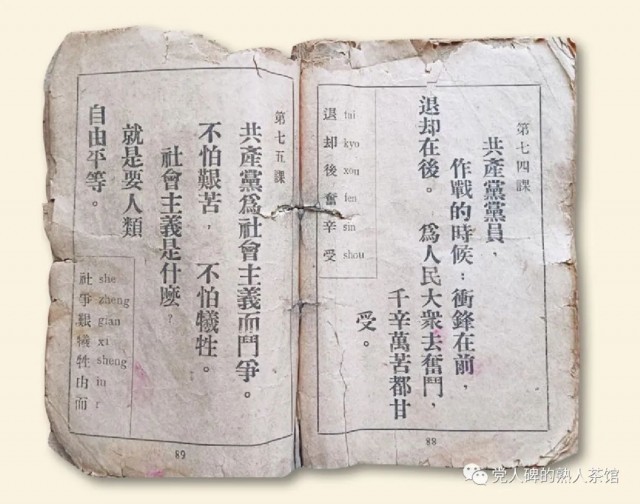 第七四課
共產黨黨員，
作戰的時候：衝鋒在前，
退却在後。 爲人民大衆去奮鬥，
千辛萬苦都甘
受。
退 tai
却 kyo
後 xou
奮 fen
辛 sin
受 shou
88
第七五課
共產黨爲社會主義而鬥爭。
不怕艱苦， 不怕犧牲。
社會主義是什麽？
就是要人類
自由平等。
社 she
爭 zheng
艱 gian
犧 xi
牲 sheng
由
而 r
89
党人碑的熟人茶馆